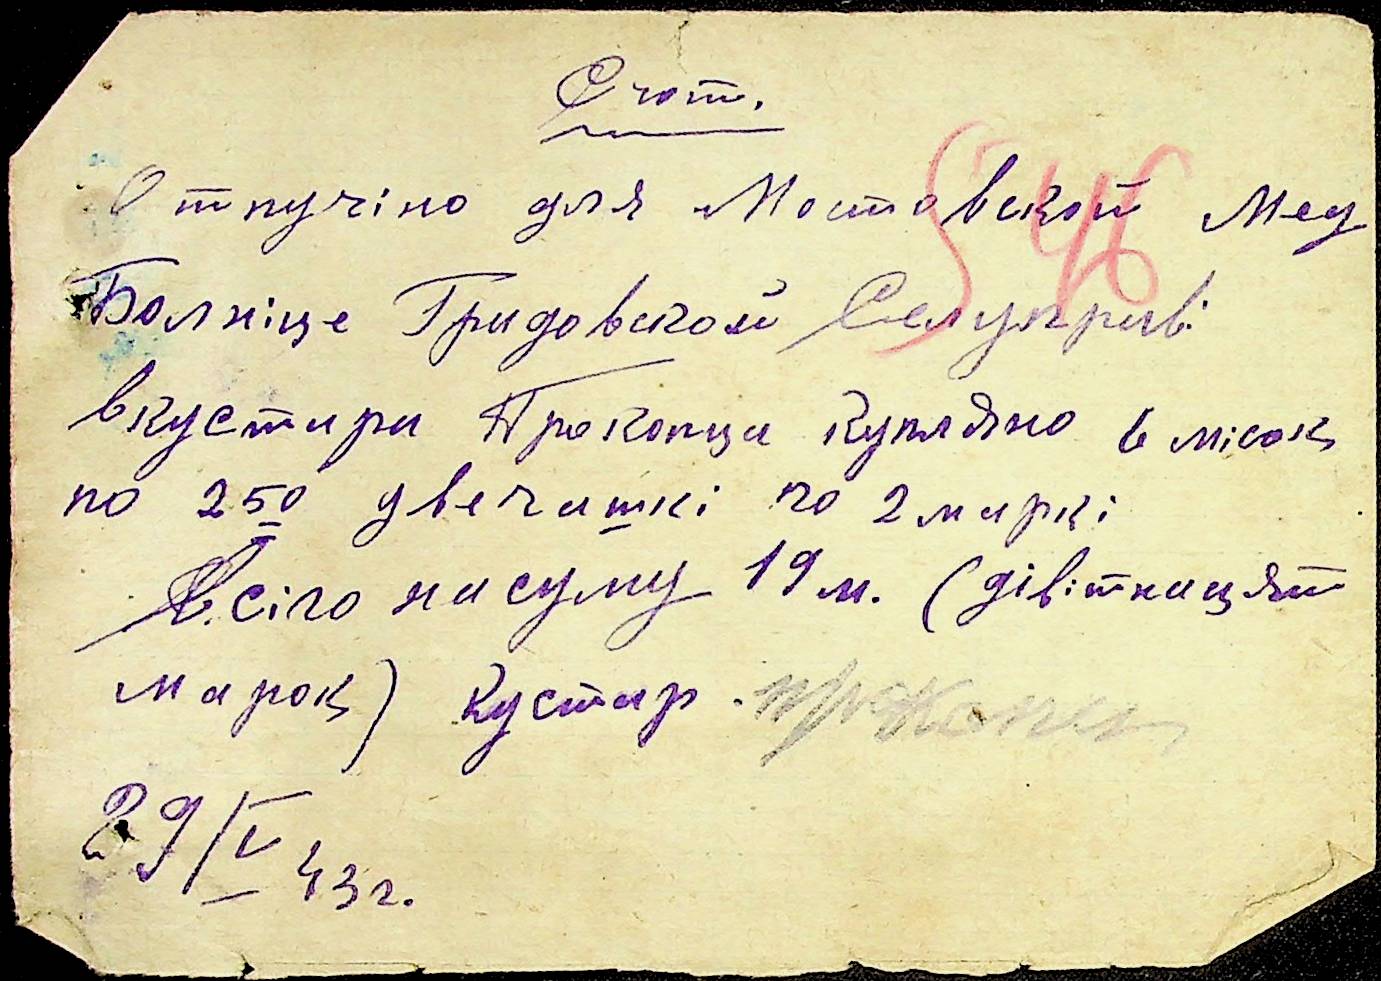 Счот.
546
Отпучіно для Мостовской Мед
Болніце Гридовской Селуправі
вкустара Прокопца купляно 6 місок
по 250 две чашкі по 2 маркі
Всіго на суму 19 м. (дівітнацят
марок) кустар Прокопец
29/V 43 г.